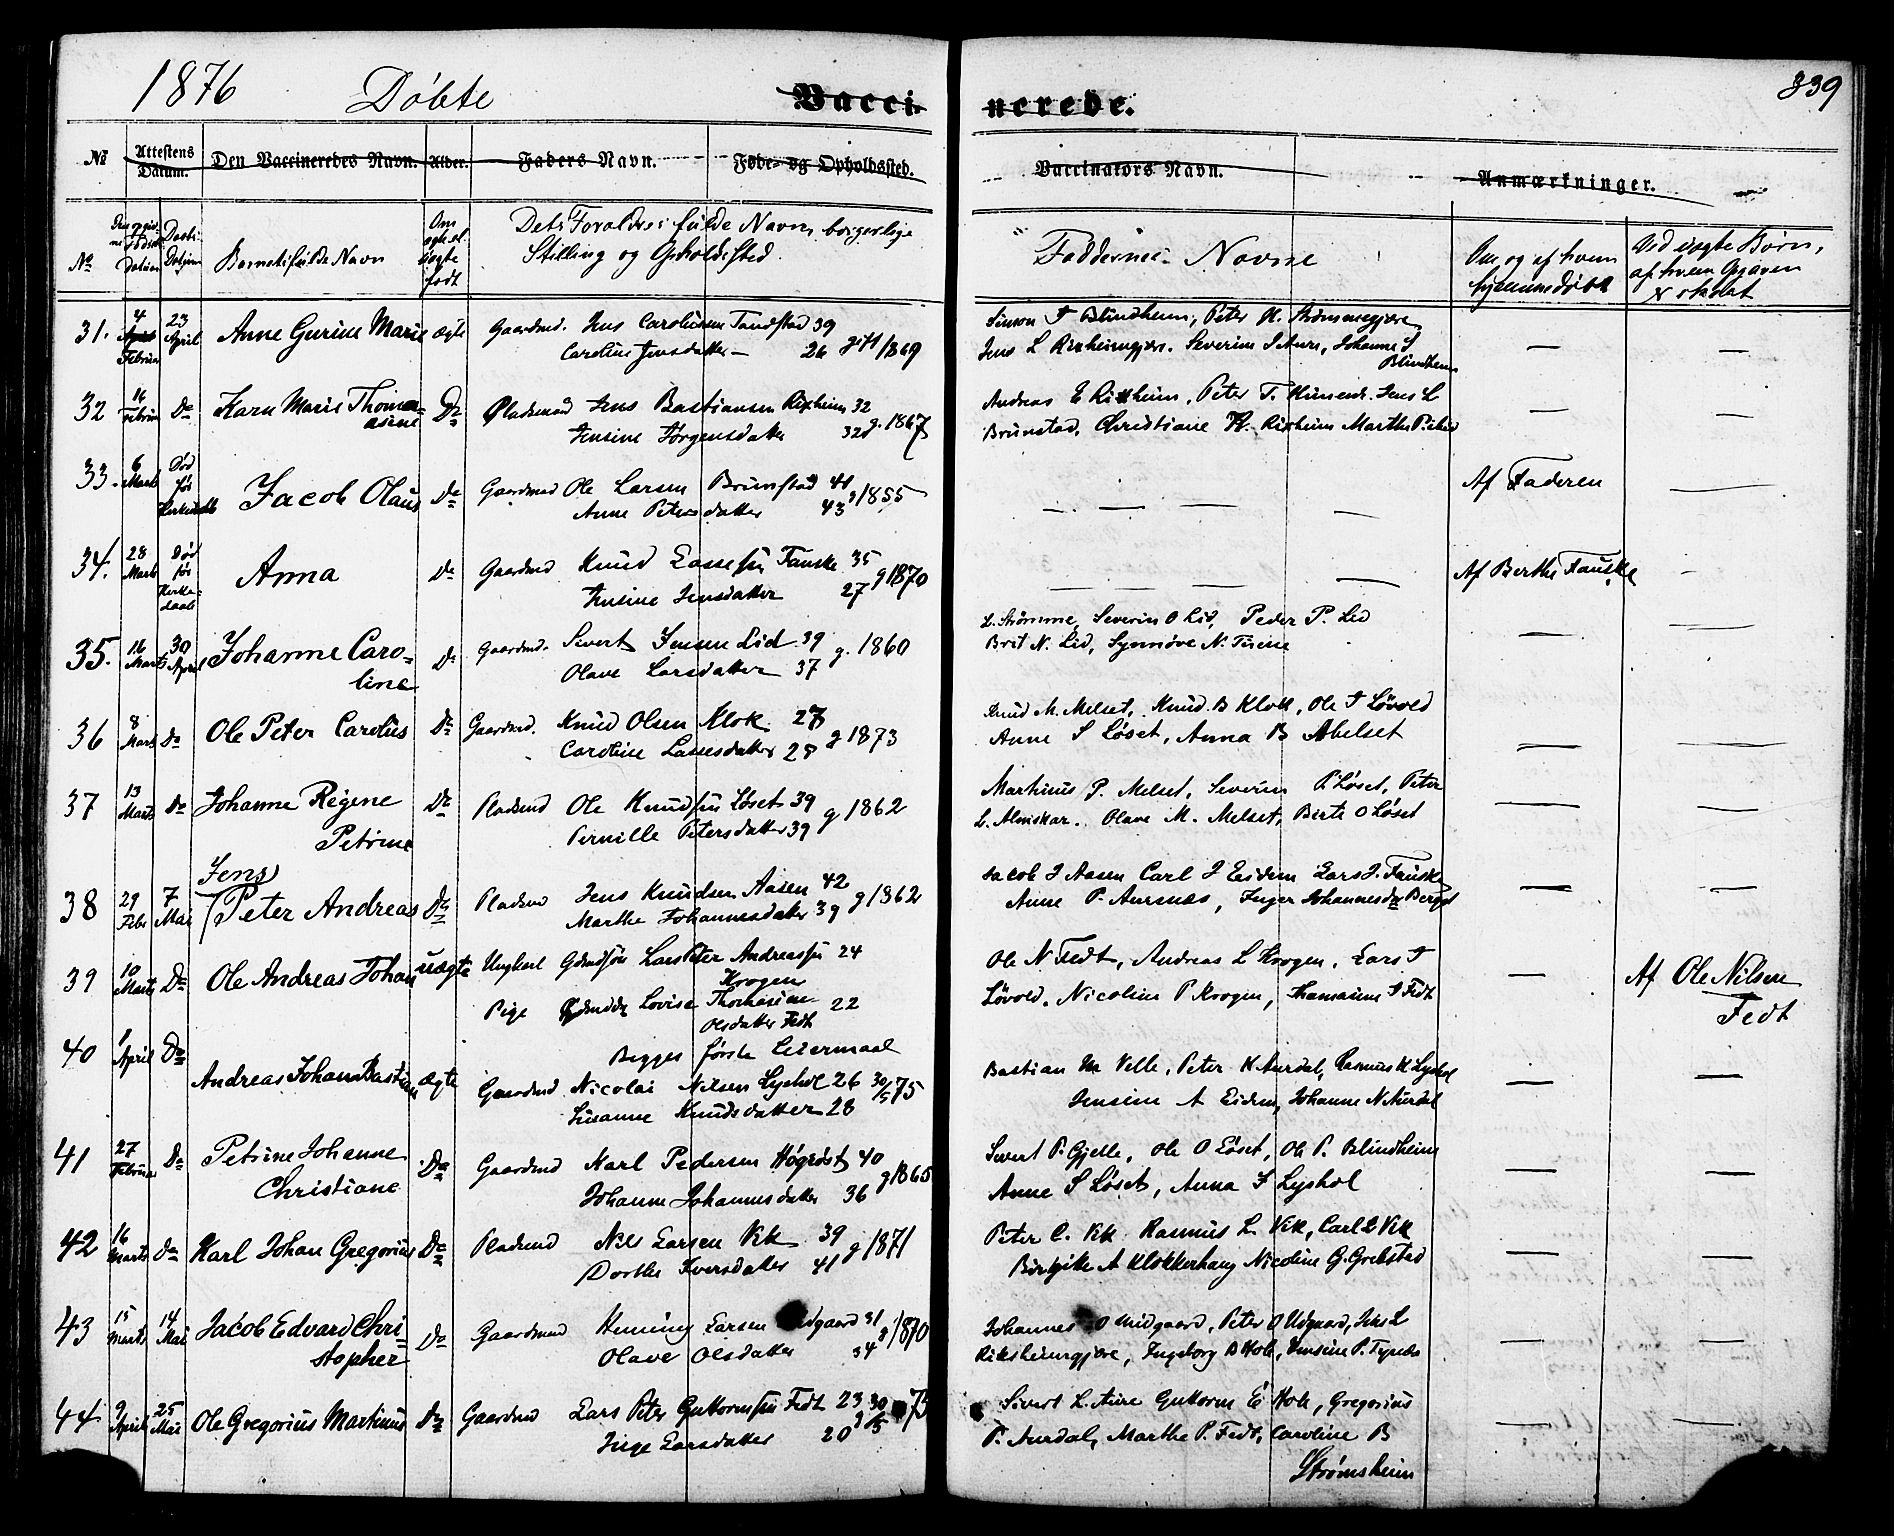 1876 Döbte Vacci- nerede. 339
No Attestens Datum. Den Vaccineredes Navn. Alder. Faders Navn. Føde- og Opholdssted. Vaccinators Navn. Anmærkninger.
No Barnets fulde Navn Om ægte el. uægte født Dets Forældres fulde Navn, borgerlige Stilling og Opholdssted Faddernes Navne Om og af hvem hjemmedöbt Ved uægte Børn, af hvem Opgaven er skeet
31. 4 Februar 23 April Anne Gurine Marie ægte Gaardmd. Jens Carolussen Tandstad 39
Caroline Jensdatter 26 gift 1869
Simon Blindheim, Peter H. Strømmegjære
Jens L Rixheimgjær. Severine Aure, Johanne S Blindheim — —
32 16 Februar Do Karn Marie Thomasine Do Pladsmand Jens Bastiansen Rixheim 32
Jensine Jørgensdatter 32 g. 1867
Andreas E Rixheim, Peter T. Jens L
Brunstad, Christiane Rixheim Marthe — —
33. 6 Marts Død før Jacob Olaus Do Gaardmd Ole Larsen Brunstad 41
Anne Petersdatter 43 g 1855
— — — — Af Faderen —
34. 28 Marts Død før Kirkedaab Anna Do Gaardmd Knud Lassesen Fauske 35
Jensine Jensdatter 27 g 1870
— — — — Af Berthe Fauske —
35. 16 Marts 30 April Johanne Caroline Do Gaardmd. Sivert Jensen Lid 39
Olave Larsdatter 37 g. 1860
L. Strömme, Severin O Lid, Peder P. Lid
Brit N. Lid, Synnöve N. — —
36 8 Marts Do Ole Peter Carolius Do Gaardmd. Knud Olsen Klok 27
Caroline Lassesdatter 28 g 1873
Knud M. Melset, Knud B Klok, Ole Lövold
Anne S Löset, Anna B Abelset — —
37 13 Marts Do Johanne Regine Petrine Do Pladsmd Ole Knudsen Löset 39
Pernille Petersdatter 39 g 1862
Martinus P. Melset, Severin P Löset, Peter
L. Almskar. Olave M. Melset, Birte O Löset — —
38 29 Febr 7 Mai Jens Peter Andreas Do Pladsmd Jens Knudsen Aasen 42
Marthe Johannesdatter 39 g 1862
Jacob J Aasen Carl J Eidem Lars J. Fauske
Anne P. Aursnæs, Inger Johannesdr Berget — —
39 10 Marts Do Ole Andreas Johan uægte Ungkarl Gdmdsön Lars Peter Andreassen Krogen 24
Pige Lovise Thomasine Olsdatter Fedt 22
Begges förste Leiermaal
Ole N Fedt, Andreas L Krogen, Lars
Lövold, Nicoline P Krogen, Thomasine Fedt — Af Ole Nilsen Fedt
40 1 April Do Andreas Johan Bastian ægte Gaardmd Nicolai Nilsen Lyshol 26
Susanne Knudsdatter 28 30/5 75
Bastian M Velle, Peter K Aurdal, Rasmus K Lyshol
Jensine A Eidem, Johanne N Aurdal — —
41 27 Februar Do Petrine Johanne Christiane Do Gaardmd Karl Pedersen Högröst 40
Johanne Johannesdatter 36 g 1865
Sivert P. Gjelle, Ole O Löset, Ole P. Blindheim
Anne S Löset, Anna Lyshol — —
42 16 Marts Do Karl Johan Gregorius Do Pladsmd Nils Larsen Vik 39
Dorthe Iversdatter 41 g 1871
Peter C. Vik Rasmus L. Vik, Carl L Vik
A Klokkerhaug Nicoline G. Grebstad — —
43 15 Marts 14 Mai Jacob Edvard Christopher Do Gaardmd Henning Larsen Midgaard 31
Olave Olsdatter 34 1870
Johannes O Midgaard, Peter O Midgaard, Jens L
Riksheimgjære, Ingeborg B Hole, Jensine P. — —
44 9 April 25 Mai Ole Gregorius Martinus Do Gaardmd Lars Peter Guttormsen Fedt 23
Inge Larsdatter 20 g 30/5 75
Sivert L. Aure Guttorm E Hole, Gregorius
P. Aurdal, Marthe P. Fedt, Caroline B
Strömsheim — —